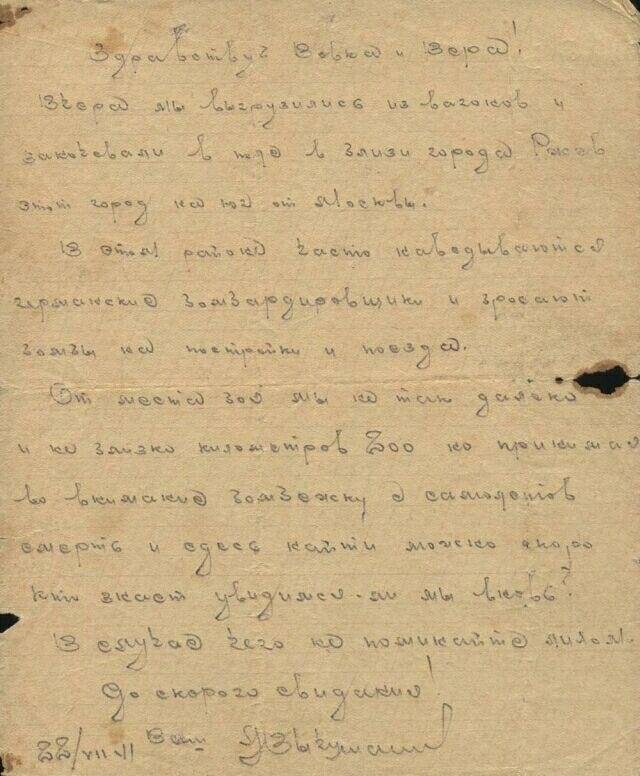 Здравствуй Вовка и Вера!
Вчера мы выгрузились из вагонов и
закочевали в   в близи города Ржев
этот город на юг от Москвы.
В этом районе часто наведываются
германские бомбардировщики и бросают
бомбы на постройки и поезда.
От места боя мы не так далеко
и не близко километров 200 но принимая
во внимание бомбежку с самолетов
смерть и здесь найти можно скоро
Кто знает увидимся-ли мы вновь?
В случае чего не поминайте лихом.
До скорого свидания!
22/VII 41 Ваш